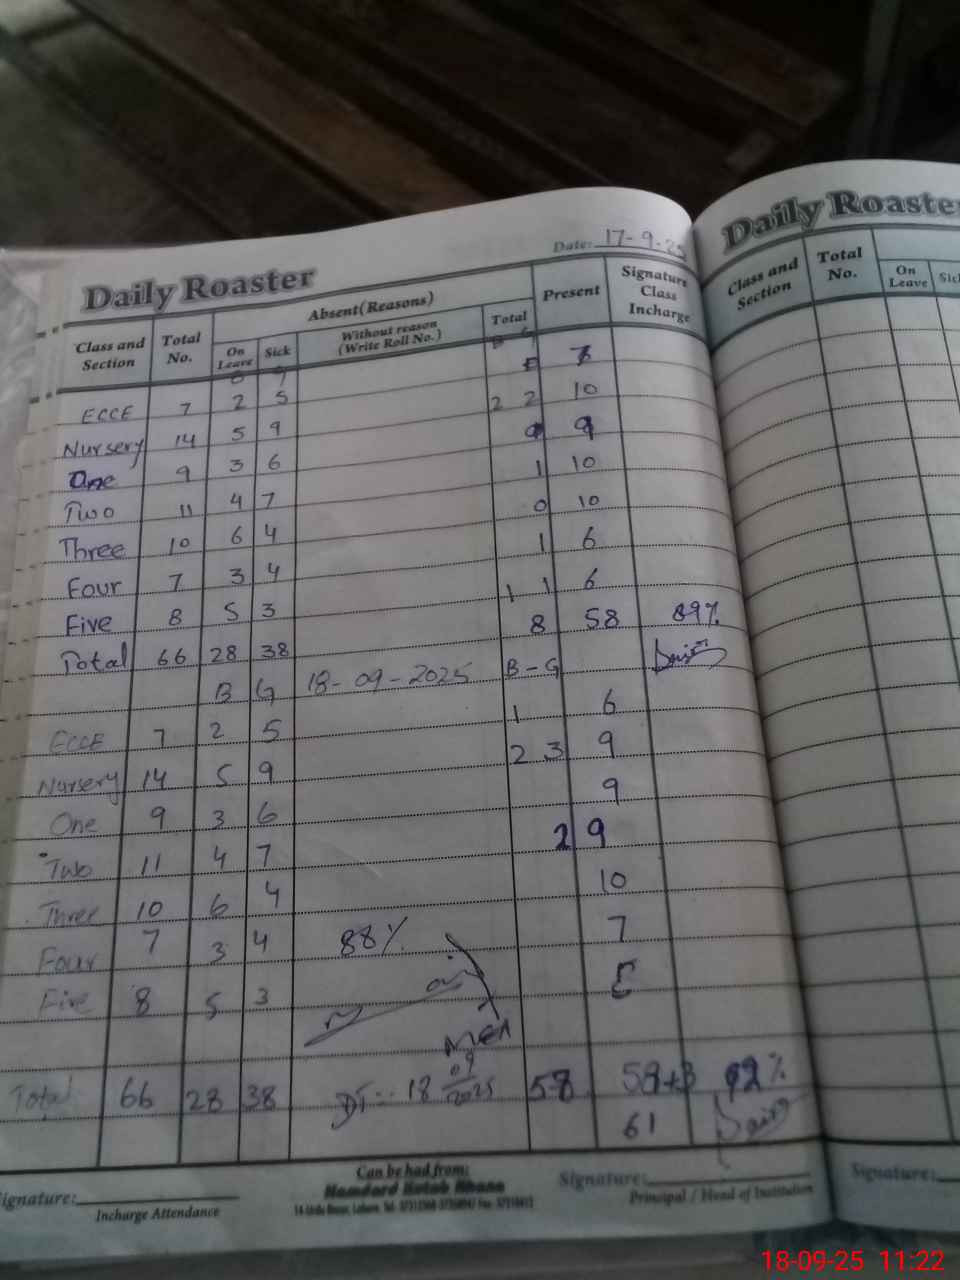 Daily Roaster
Date: 17-9-25
Class and Section Total No. Absent (Reasons) Present Signature Class Incharge
On Leave Sick Without reason (Write Roll No.) Total
ECCE 7 2 5
Nursery 14 5 9 2 2 10
One 9 3 6 9
Two 11 4 7 1 10
Three 10 6 4 0 10
Four 7 3 4 1 6
Five 8 5 3 1 1 6
Total 66 28 38 8 58 89%
B G 18-09-2025 B-G
ECCE 7 2 5 1 6
Nursery 14 5 9 2 3 9
One 9 3 6 9
Two 11 4 7 2 9
Three 10 6 4 10
Four 7 3 4 88% 7
Five 8 5 3
MEA
Total 66 28 38 DT:- 18 09 2025 58 58+3 92%
61
Signature:
Incharge Attendance
Can be had from:
Hamdard Kutab Khana
Signature:
Principal / Head of Institution
Daily Roaster
Class and Section Total No.
On Leave Sick
Signature:
18-09-25 11:22